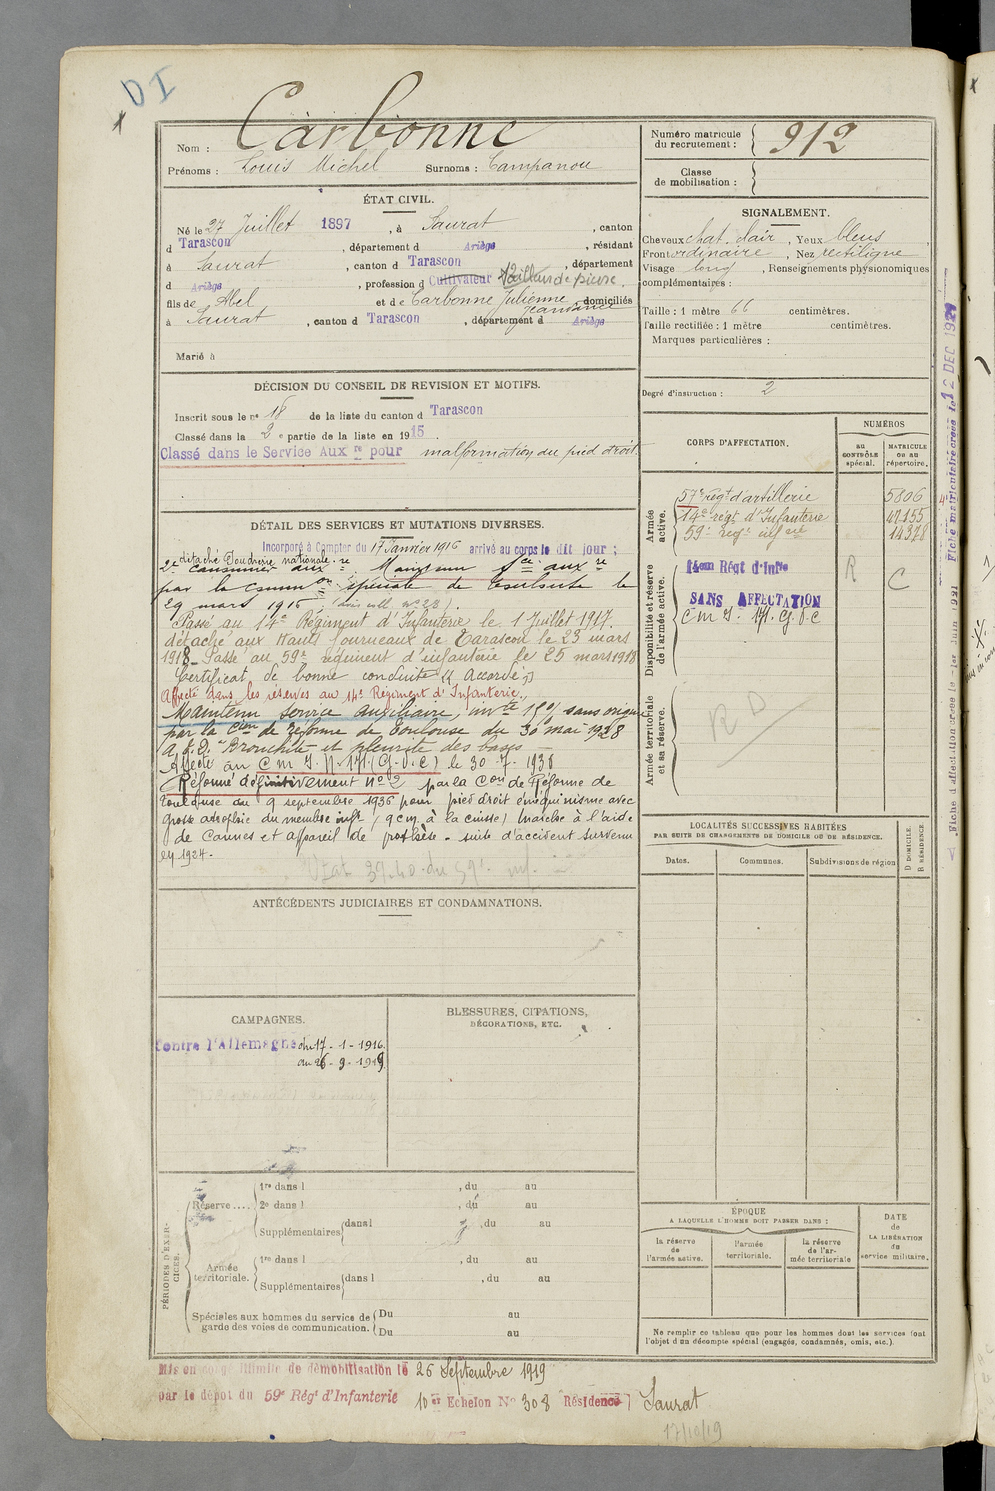 DI
Nom : Carbonne
Prénoms : Louis Michel Surnoms : Campanou
ÉTAT CIVIL.
Né le 27 Juillet 1897, à Saurat, canton
d Tarascon, département d Ariège, résidant
à Saurat, canton d Tarascon, département
d Ariège, profession d Cultivateur Tailleur de pierre.
fils de Abel et de Carbonne Julienne Jeanne, domiciliés
à Saurat, canton d Tarascon, département d Ariège
Marié à
DÉCISION DU CONSEIL DE REVISION ET MOTIFS.
Inscrit sous le n° 18 de la liste du canton d Tarascon
Classé dans la 2e partie de la liste en 1915.
Classé dans le Service Auxre pour malformation du pied droit.
DÉTAIL DES SERVICES ET MUTATIONS DIVERSES.
Incorporé à Compter du 17 Janvier 1916 arrivé au corps le dit jour ;
détaché Poudrerie nationale
2e Canonnier auxre. Maintenu sce auxre
par la common spéciale de Toulouse le
29 mars 1916
Passé au 14e Régiment d'Infanterie le 1 Juillet 1917.
détaché aux Hauts fourneaux de Tarascon le 23 mars
1918 - Passé au 59e régiment d'infanterie le 25 mars 1918
Certificat de bonne conduite "Accordé"
Affecté dans les réserves au 14e Régiment d'Infanterie.
Maintenu service auxiliaire, invté 10% sans origine
par la Com de réforme de Toulouse du 30 mai 1928
Bronchite et pleurite des bases
Affecté au C m I. N. 171 (G.V.C) le 30-7-1936
Réformé définitivement n° 2 par la Con de Réforme de
Toulouse du 9 septembre 1936 pour pied droit équinisme avec
grosse atrophie du membre infr (9cm à la cuisse) marche à l'aide
de Cannes et appareil de prothèse - suite d'accident survenu
en 1924.
ANTÉCÉDENTS JUDICIAIRES ET CONDAMNATIONS.
CAMPAGNES.
Contre l'Allemagne du 17-1-1916.
au 26-9-1919.
BLESSURES, CITATIONS,
DÉCORATIONS, ETC.
PÉRIODES D'EXERCICES.
Réserve.... 1re dans l , du au
2e dans l , du au
Supplémentaires dans l , du au
Armée territoriale. 1re dans l , du au
Supplémentaires dans l , du au
Spéciales aux hommes du service de garde des voies de communication. Du au
Du au
Mis en congé illimité de démobilisation le 26 Septembre 1919
par le dépôt du 59e Régt d'Infanterie 10er Echelon N° 308 Résidence Saurat
17/10/19
Numéro matricule du recrutement : 912
Classe de mobilisation :
SIGNALEMENT.
Cheveux chat. clair, Yeux bleus
Front ordinaire, Nez rectiligne
Visage long, Renseignements physionomiques
complémentaires :
Taille : 1 mètre 66 centimètres.
Taille rectifiée : 1 mètre centimètres.
Marques particulières :
Degré d'instruction : 2
CORPS D'AFFECTATION.
NUMÉROS
au CONTRÔLE spécial.
MATRICULE ou au répertoire.
Armée active.
57e régt d'artillerie 5806
14e régt d'Infanterie
59e régt infrie 14378
Disponibilité et réserve de l'armée active.
14eme Régt d'Infie R
SANS AFFECTATION C
C m I. 171. G.V.C
Armée territoriale et sa réserve.
RD
LOCALITÉS SUCCESSIVES HABITÉES
PAR SUITE DE CHANGEMENTS DE DOMICILE OU DE RÉSIDENCE.
Dates.
Communes.
Subdivisions de région
D DOMICILE.
R RÉSIDENCE.
ÉPOQUE
A LAQUELLE L'HOMME DOIT PASSER DANS :
la réserve de l'armée active.
l'armée territoriale.
la réserve de l'armée territoriale
DATE de LA LIBÉRATION du service militaire.
Ne remplir ce tableau que pour les hommes dont les services font
l'objet d'un décompte spécial (engagés, condamnés, omis, etc.).